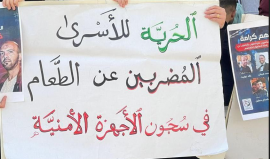 الحرية للأسرى
المضربين عن الطعام
في سجون الأجهزة الأمنية